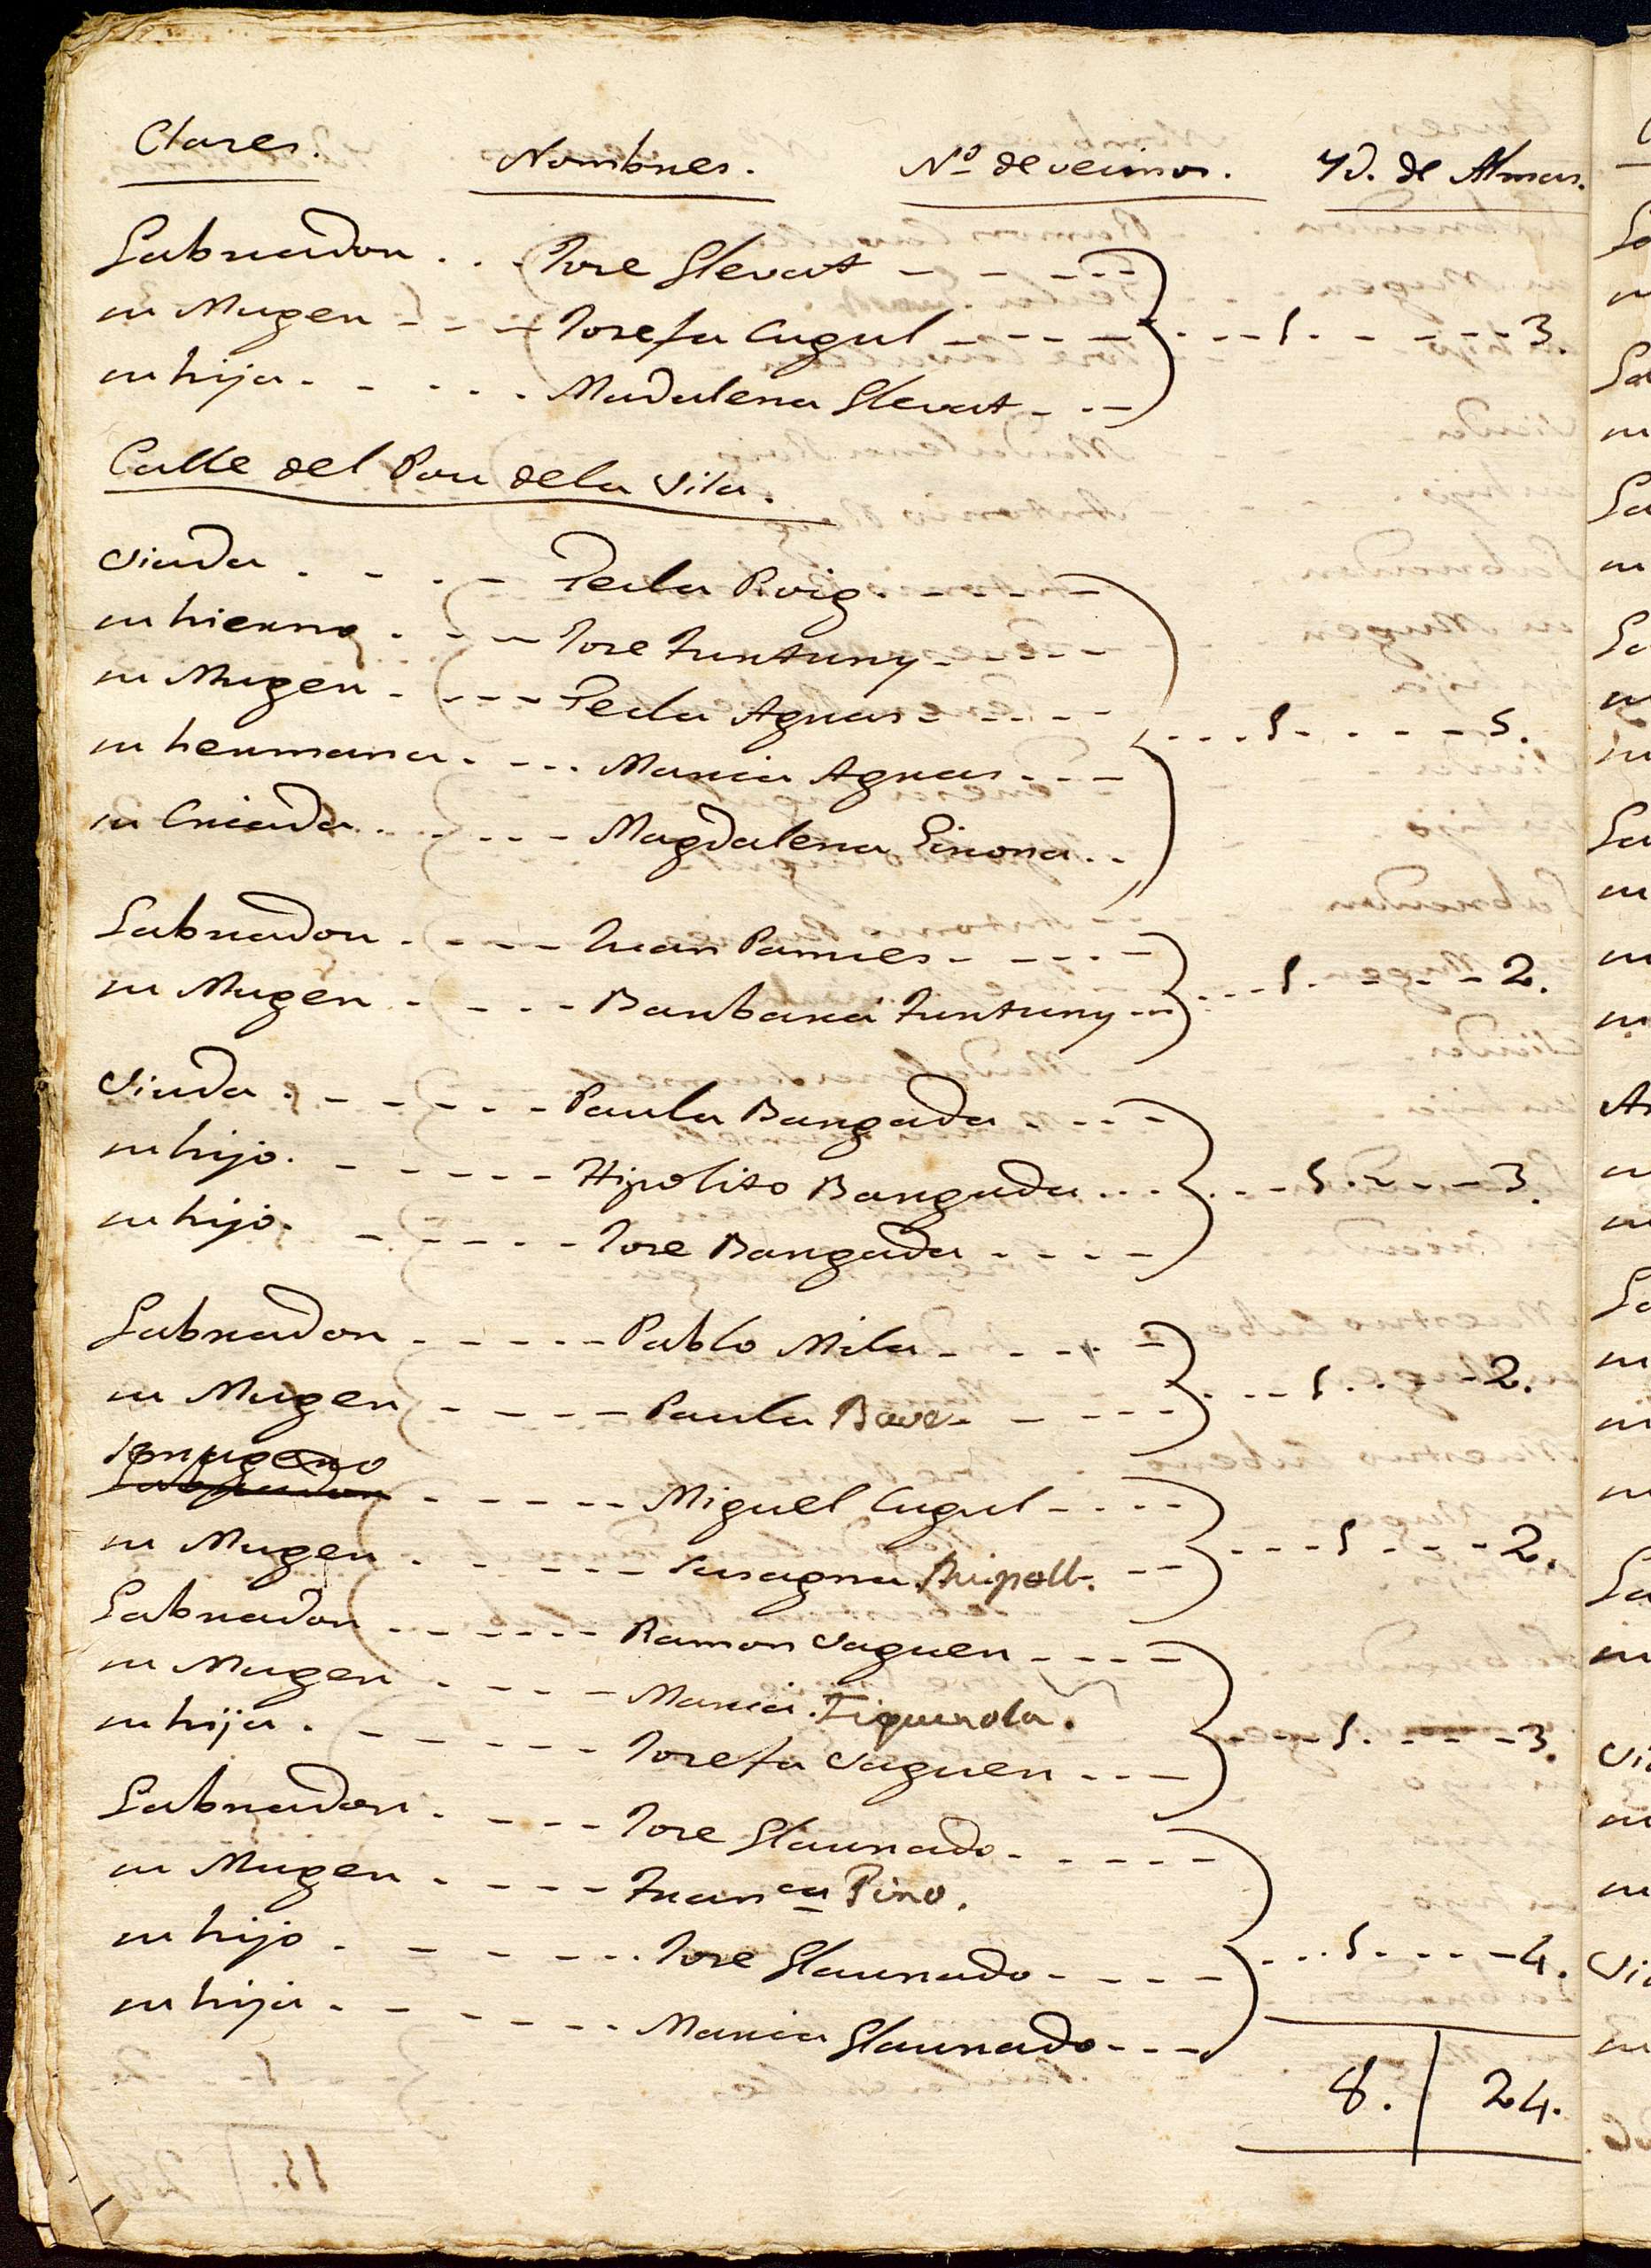 Clases. Nombres. Nº. de vecinos. Yd. de Almas.
Labrador . . . Jose Llevat - - - -
su Muger - - - Josefa Cugul - - - - . . . 1. - - - - 3.
su hija - - . . . Madalena Llevat - . -
Calle del Pou dela Vila.
Viuda . - . - Tecla Roig. - - - - -
su hierno . - - Jose Funtuny - - - - -
su Muger - . - - - Tecla Agras - - - - -
su hermana . - . . Maria Agras . - - . . . 1. - - - - 5.
su Criada . . - . . - Magdalena Girona . .
Labrador . - - - Juan Pamies - - - - -
su Muger - - . . - Barbara Funtuny - . . . . - 1. - - - - 2.
Viuda . - - - . . - Paula Bargada . - - -
su hijo. - - - - - - Hipolito Bargada . . . . - - 1. - - - 3.
su hijo. - - - - - - Jose Bargada . - - -
Labrador - - - - - Pablo Mila - - - - -
su Muger - - - - - Paula Bove - - - - - . - - 1. - - - 2.
Labrador - - - - - Miguel Cugul - - - -
su Muger . - - - - - Susagna Ripoll. - - . - - 1. - - - 2.
Labrador - - - - - - Ramon Vaguer - - - -
su Muger . - - - - Maria Figuerola.
su hija . - - - - - - Josefa Vaguer - - - . - - - 1. - - - 3.
Labrador . - - - - Jose Llaurado - - - - -
su Muger . - - - - Franca Pino.
su hijo . - - - - - . Jose Llaurado - - - - . . . 1. - - - 4.
su hija . - - - - - . Maria Llaurado - - -
8. | 24.